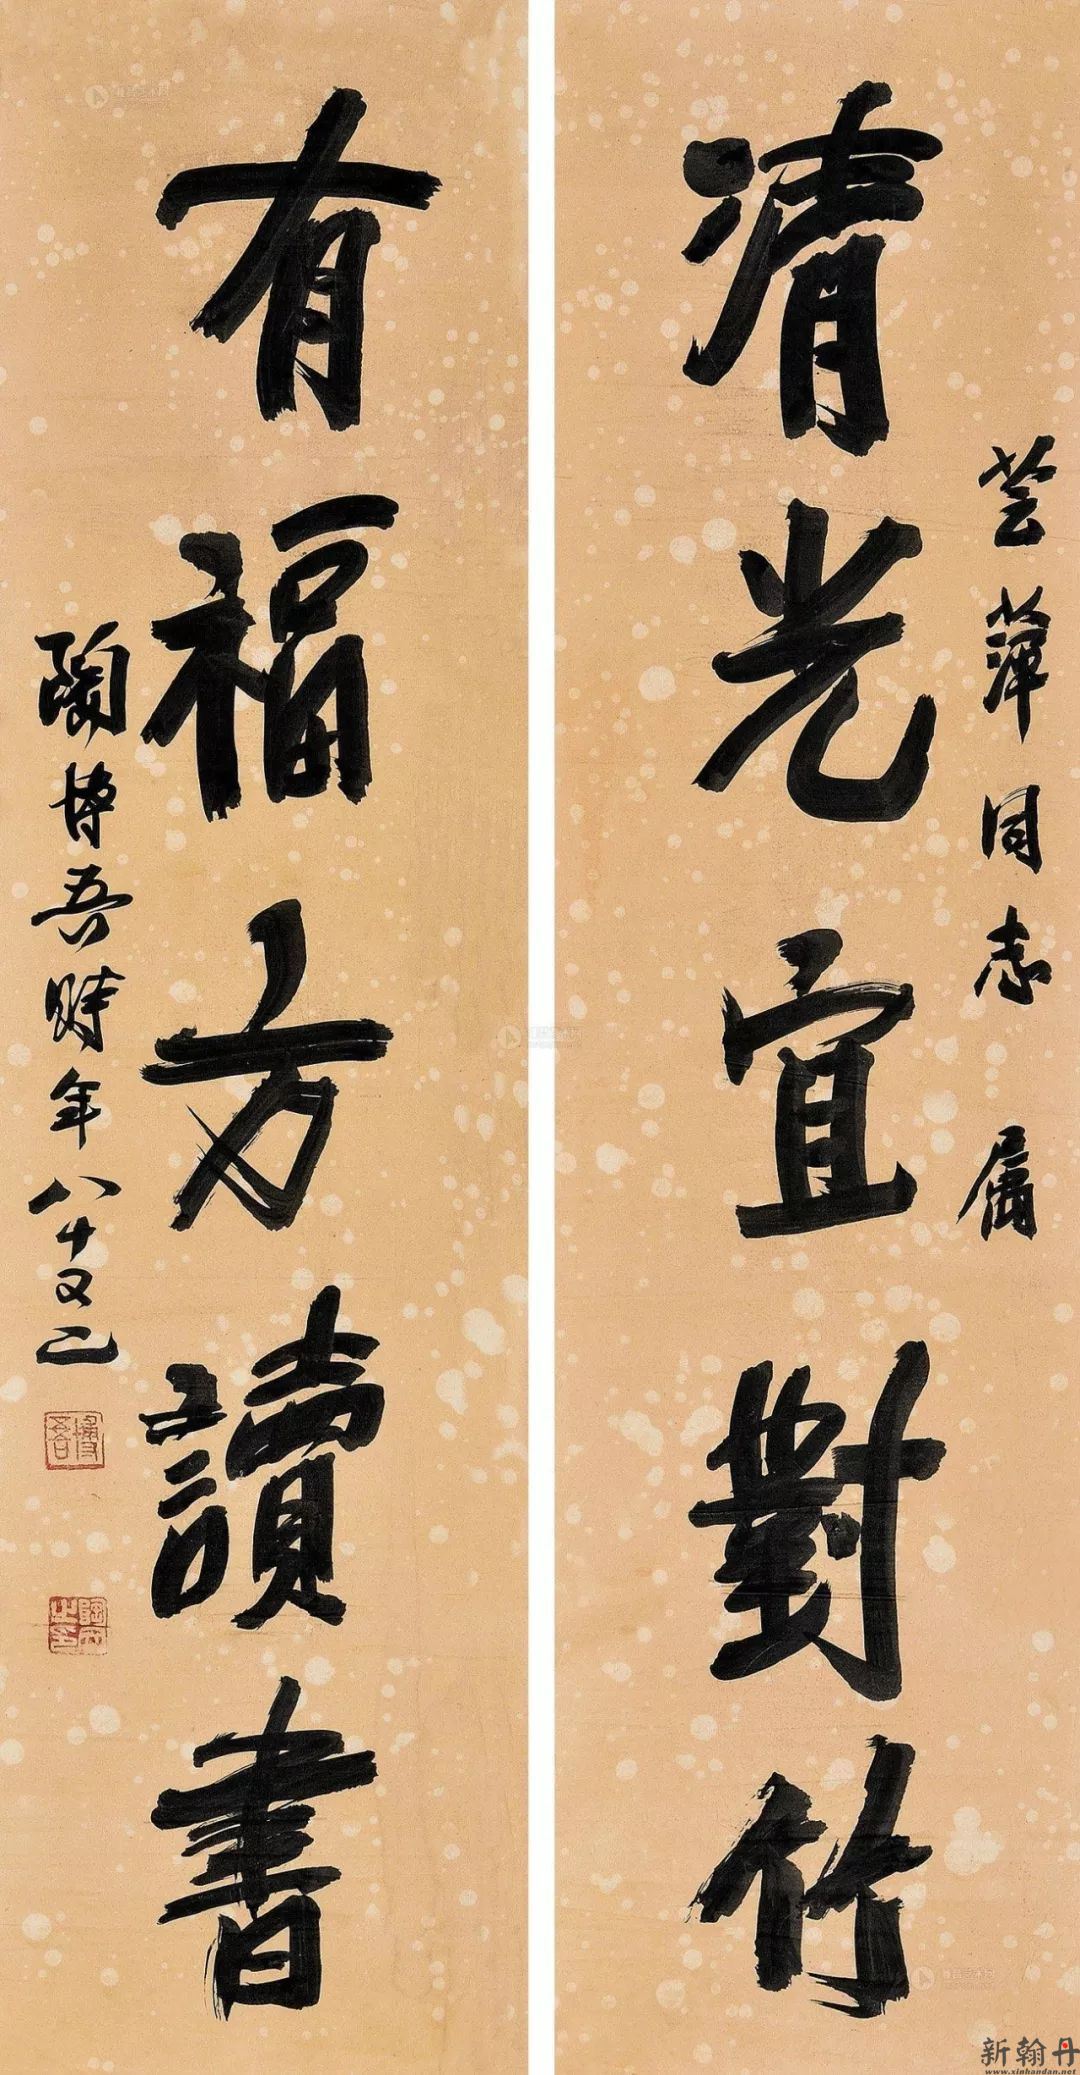 芸萍同志属
清光宜對竹
有福方讀書
陶博吾時年八十又二
博吾
新翰丹
www.xinhandan.net